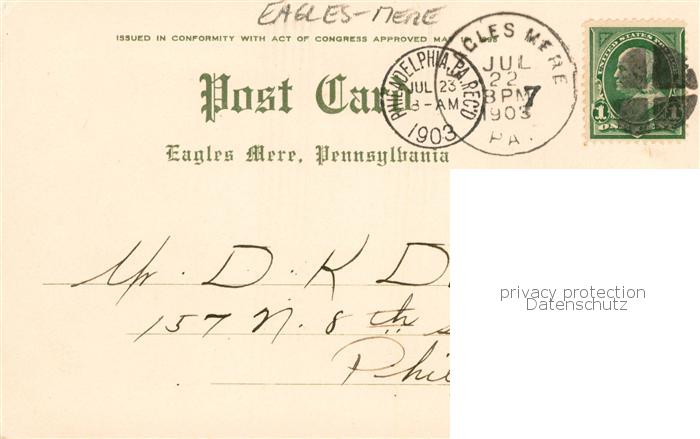 EAGLES-MERE
ISSUED IN CONFORMITY WITH ACT OF CONGRESS APPROVED MAY 19, 1898
Post Card
Eagles Mere, Pennsylvania
PHILADELPHIA, PA. REC'D
JUL 23
3-AM
1903
EAGLES MERE
JUL
22
3PM
1903
PA.
7
UNITED STATES
1 1
Mr. D. K D
157 N. 8th s
Phi
privacy protection
Datenschutz